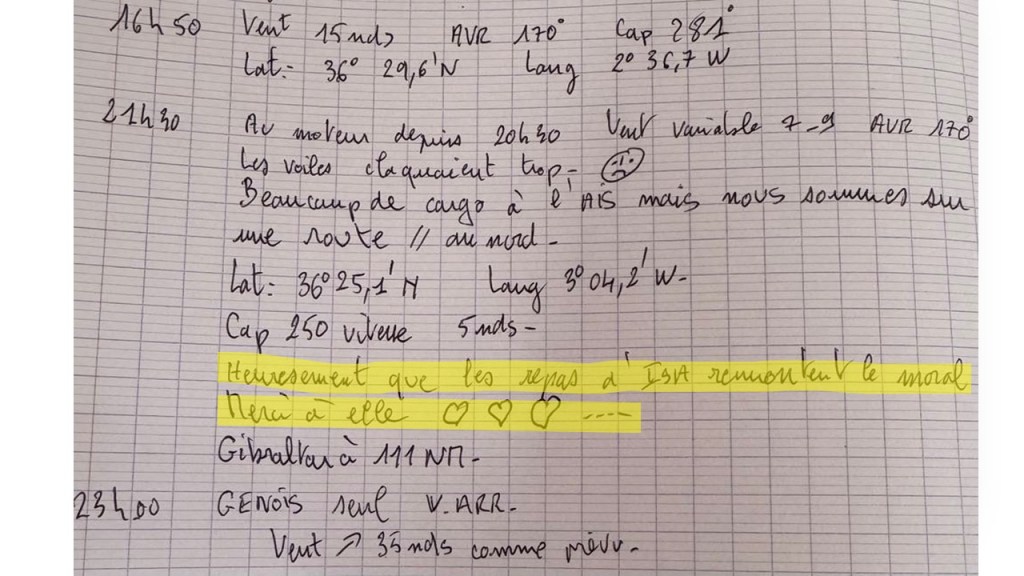 16h50 Vent 15nds AVR 170° Cap 281°
Lat: 36° 29,6'N Long 2° 36,7 W
21h30 Au moteur depuis 20h30 Vent variable 7-9 AVR 170°
Les voiles claquaient trop- ☹
Beaucoup de cargo à l'AIS mais nous sommes sur
une route // au nord-
Lat: 36°25,1'N Long 3°04,2'W-
Cap 250 vitesse 5nds-
Heuresement que les repas d'ISA remontent le moral
Merci à elle ♡ ♡ ♡ ----
Gibraltar à 111 NM-
23h00 GENOIS seul V.ARR-
Vent ↗ 35nds comme prévu-